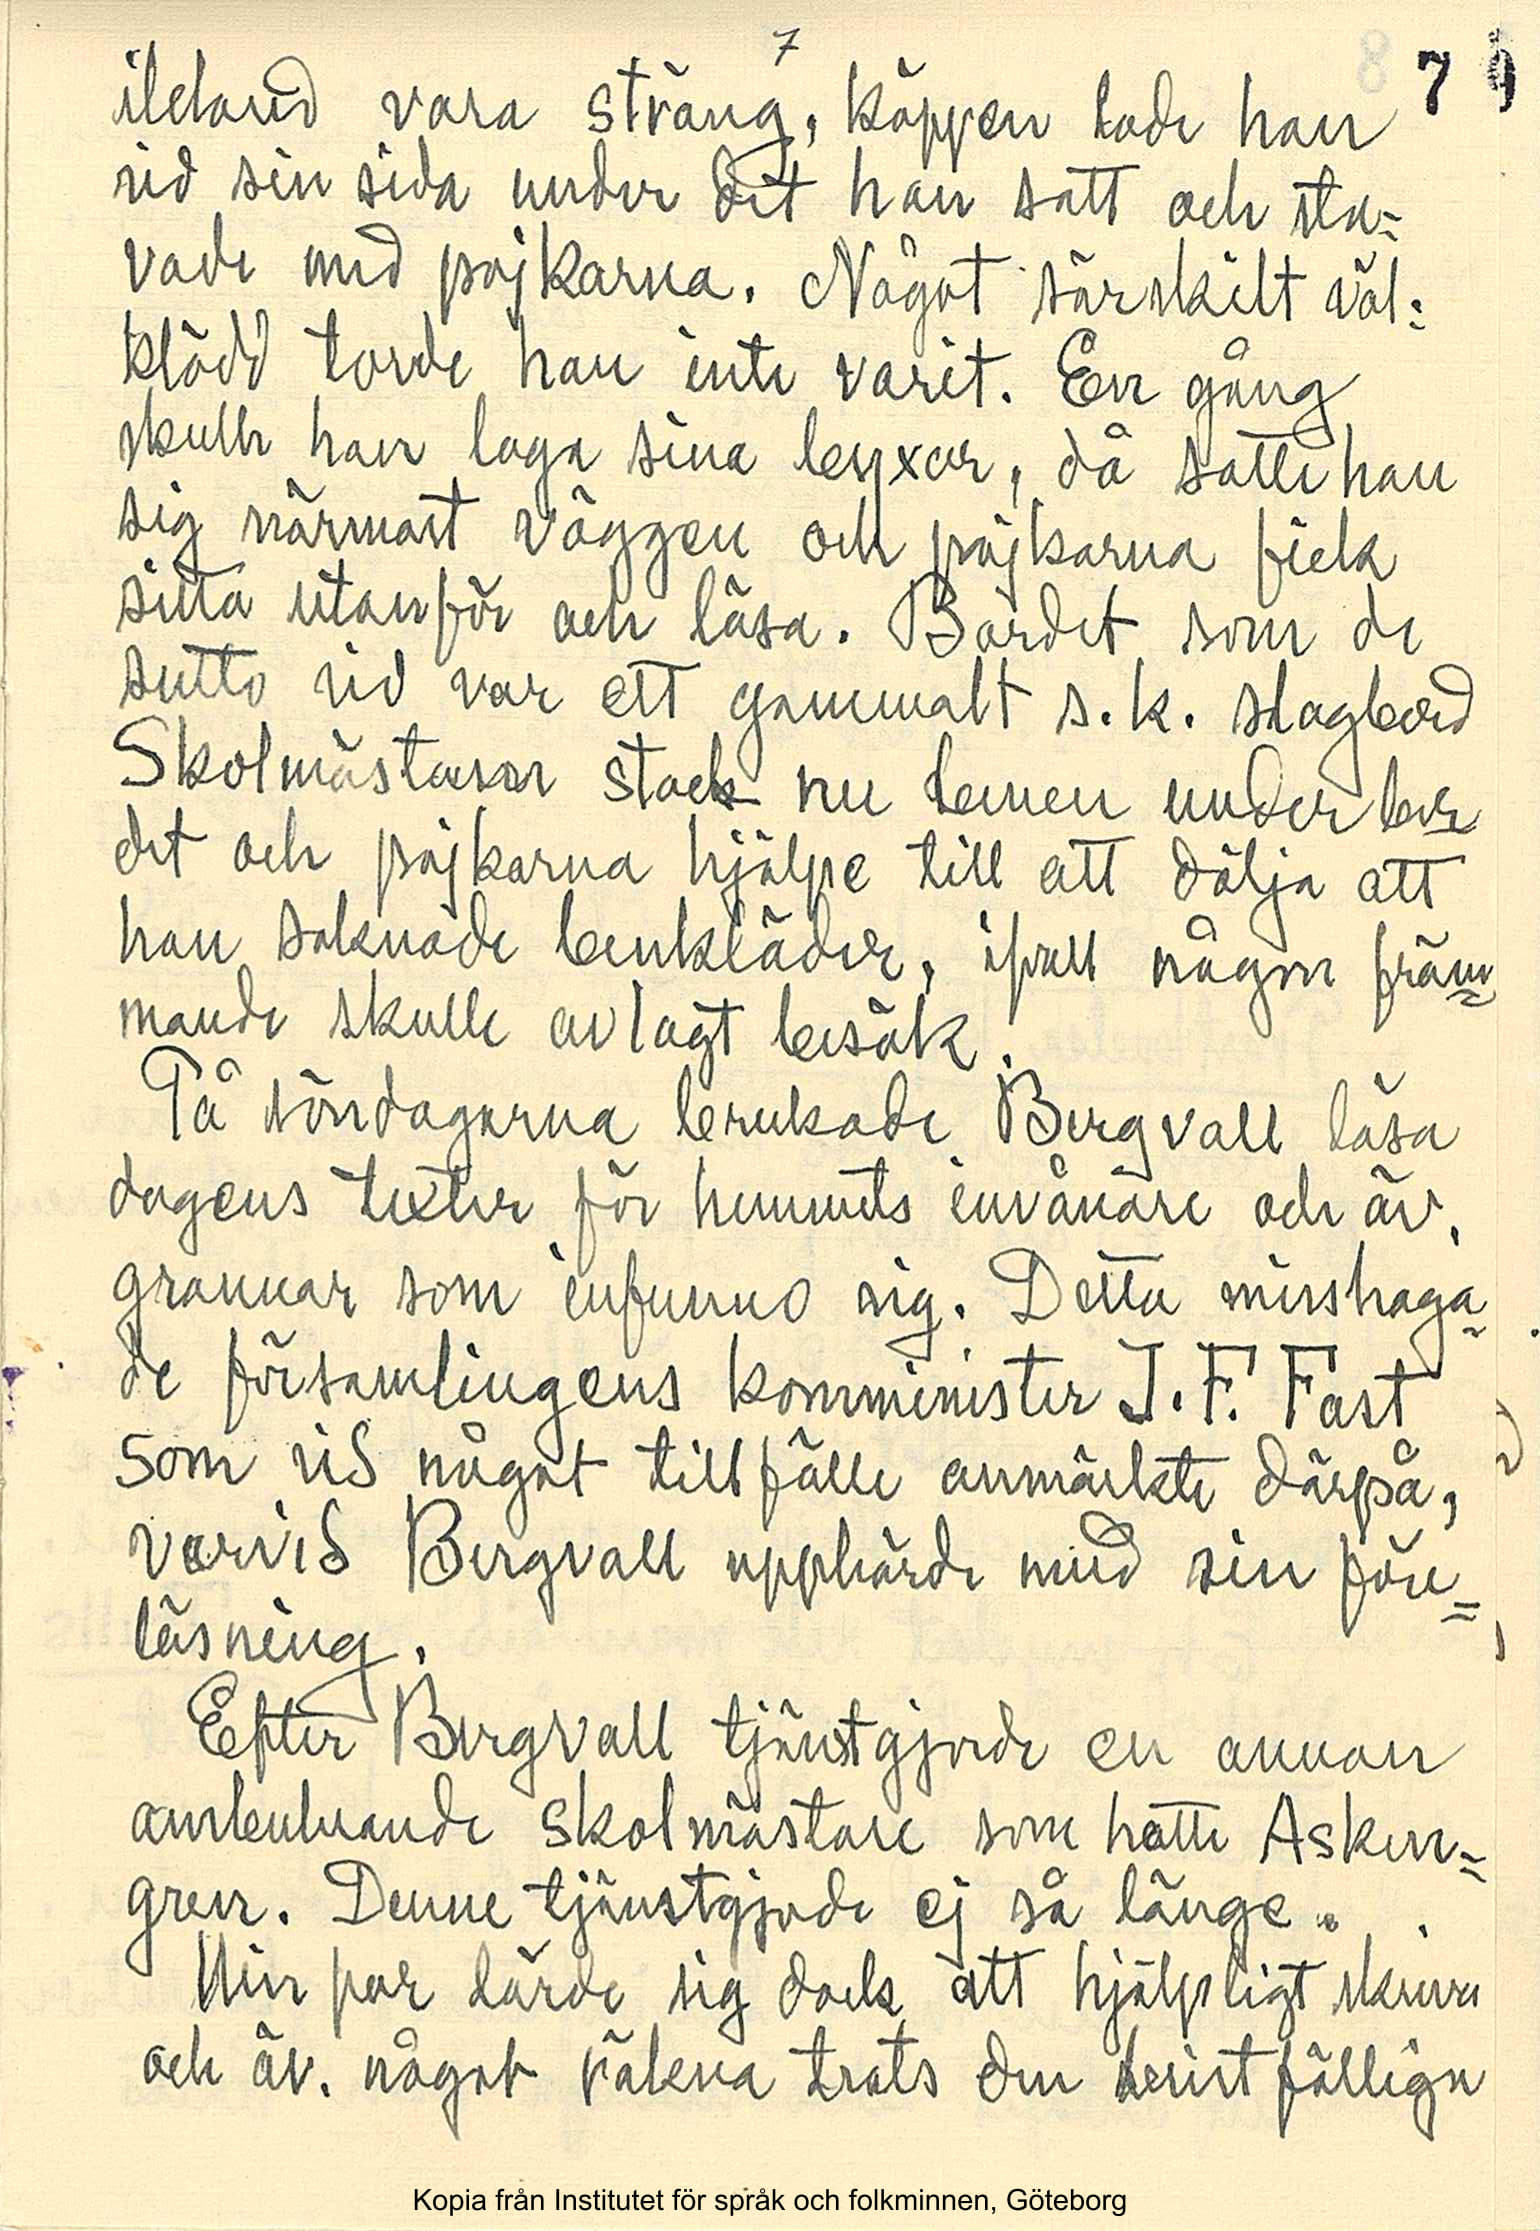 7
7
ibland vara sträng, käppen lade han
vid sin sida under det han satt och sta=
vade med pojkarna. Något särskilt väl=
klädd torde han inte varit. En gång
skulle han laga sina byxor, då satte han
sig närmast väggen och pojkarna fick
sitta utanför och läsa. Bordet som de
sutto vid var ett gammalt s.k. slagbord
Skolmästaren stack nu benen under bor
det och pojkarna hjälpe till att dölja att
han saknade benkläder, ifall någon främ=
mande skulle avlagt besök.
På söndagarna brukade Bergvall läsa
dagens texter för hemmets invånare och äv.
grannar som infunno sig. Detta misshaga=
de församlingens komminister J. F. Fast
som vid något tillfälle anmärkte därpå,
varvid Bergvall upphörde med sin före=
läsning.
Efter Bergvall tjänstgjorde en annan
ambulerande skolmästare som hette Asken=
gren. Denne tjänstgjorde ej så länge.
Min far lärde sig dock att hjälpligt skriva
och äv. något räkna trots den bristfälliga
Kopia från Institutet för språk och folkminnen, Göteborg